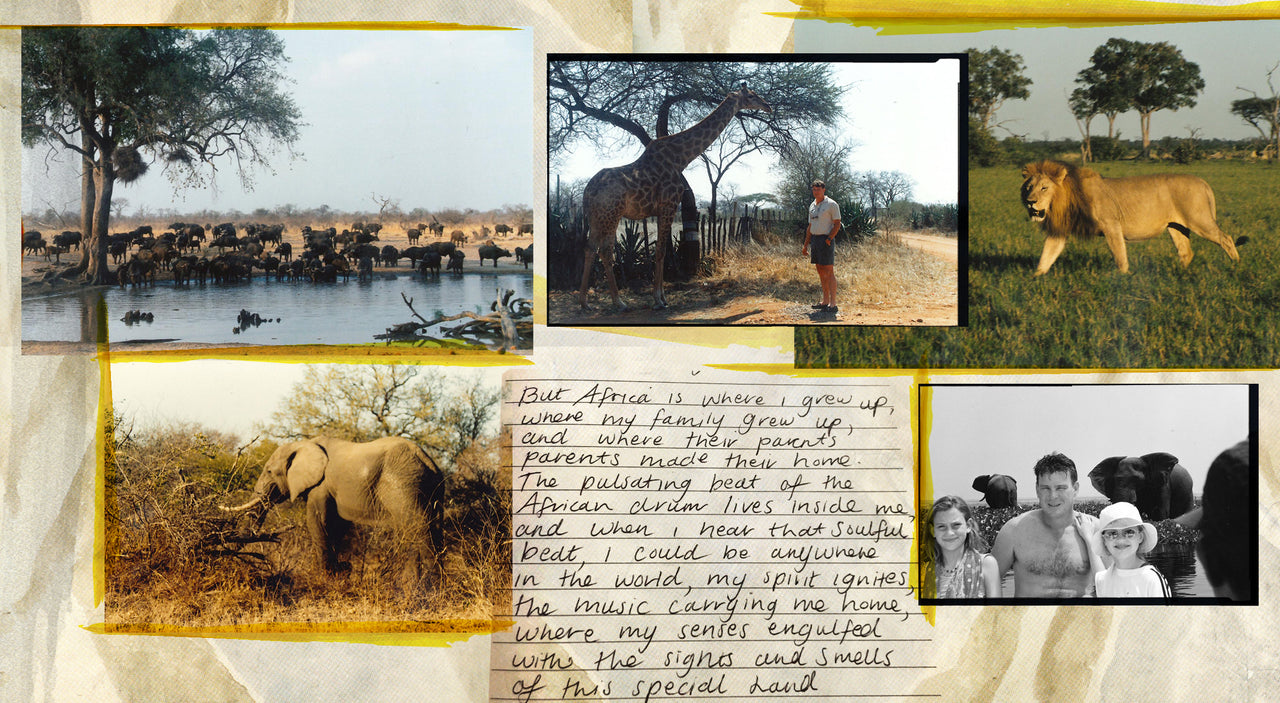 But Africa is where i grew up,
where my family grew up,
and where their parents
parents made their home.
The pulsating beat of the
African drum lives inside me,
and when i hear that soulful
beat, i could be anywhere
in the world, my spirit ignites,
the music carrying me home,
where my senses engulfed
with the sights and smells
of this special Land